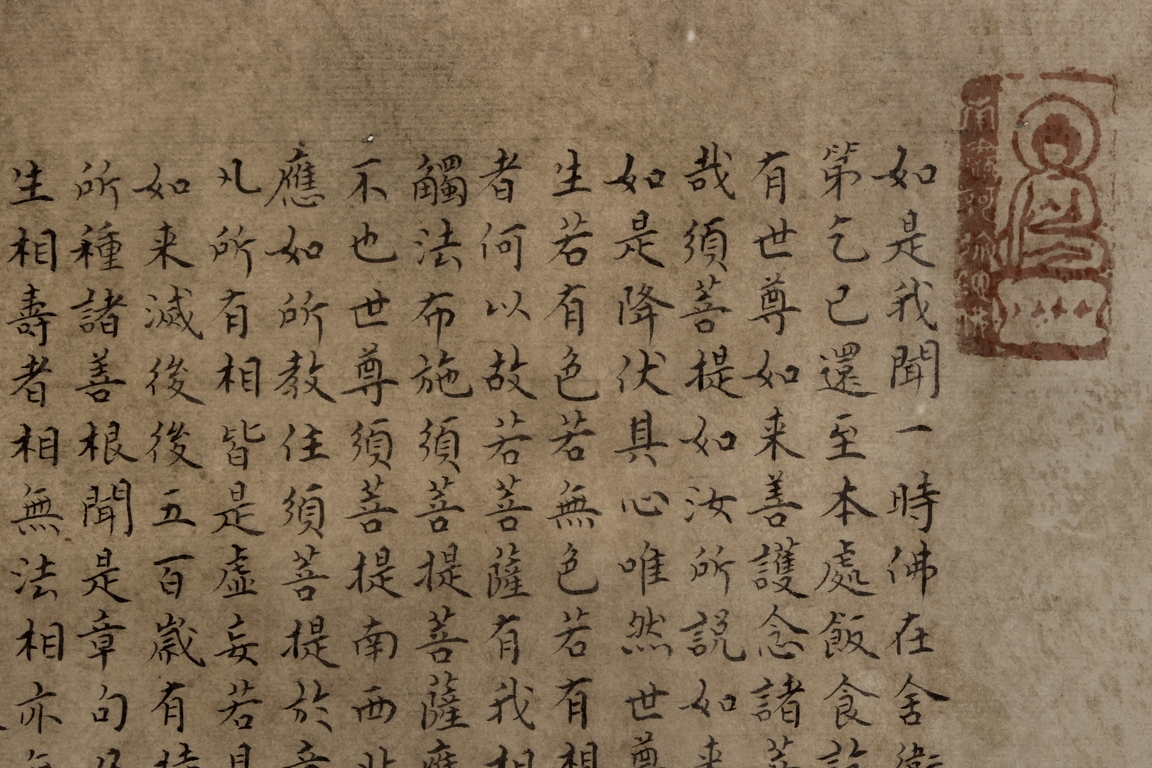 南無阿彌陀佛
如是我聞一時佛在舍衛
第乞已還至本處飯食訖
有世尊如来善護念諸菩
哉須菩提如汝所説如来
如是降伏具心唯然世尊
生若有色若無色若有想
者何以故若菩薩有我相
觸法布施須菩提菩薩應
不也世尊須菩提南西北
應如所教住須菩提於意
凡所有相皆是虛妄若見
如来滅後後五百歲有持
所種諸善根聞是章句乃
生相壽者相無法相亦無